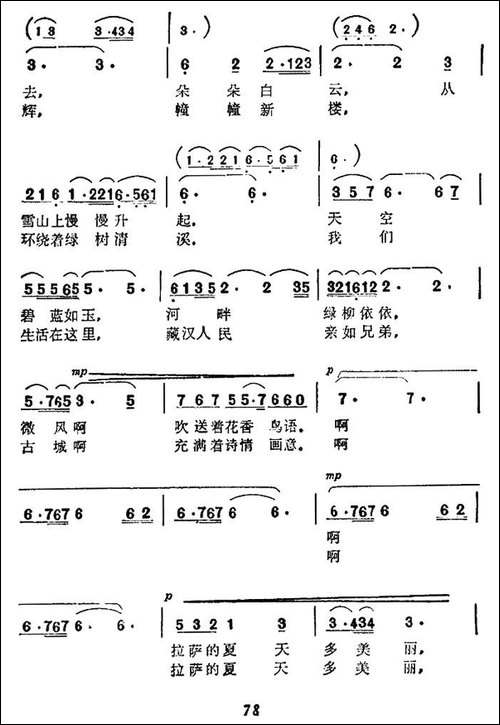 (1 3 3·434 3· ) (246 2· )
3· 3· 6 2 2·123 2· 2 3
去, 朵 朵 白 云, 从
辉, 幢 幢 新 楼,
(1·2216·561 6· )
216 1·2216·561 6· 6· 357 6· 67
雪山上慢 慢升 起, 天 空
环绕着绿 树清 溪。 我 们
55565 5· 5· 61352· 2 35 321612 2· 2·
碧 蓝如玉, 河 畔 绿柳依依,
生活在这里, 藏汉人民 亲如兄弟,
mp p
5·765 3· 5 767 55·7660 7· 7·
微 风啊 吹送着花香 鸟语。 啊
古 城啊 充满着诗情 画意。 啊
mp
6·7676 62 6·7676 6· 6·7676 62
啊
啊
p
6·7676· 6· 5321 3 3·434 3·
拉萨的夏 天 多美 丽,
拉萨的夏 天 多美 丽,
78